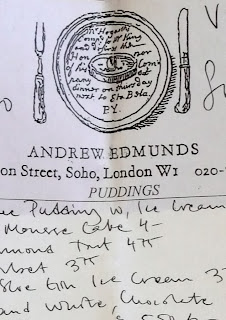 V
Mr Hogarth's
Compts to Mr King
and desires the
Honnor of his
Company at
dinner on thursday
next to Eta Beta
PY.
ANDREW EDMUNDS
on Street, Soho, London W1 020-
PUDDINGS
ee Pudding w. Ice Cream
Mousse Cake 4-
mond Tart 4.75
rbet 3.75
Sloe Gin Ice Cream 3
and White Chocolate